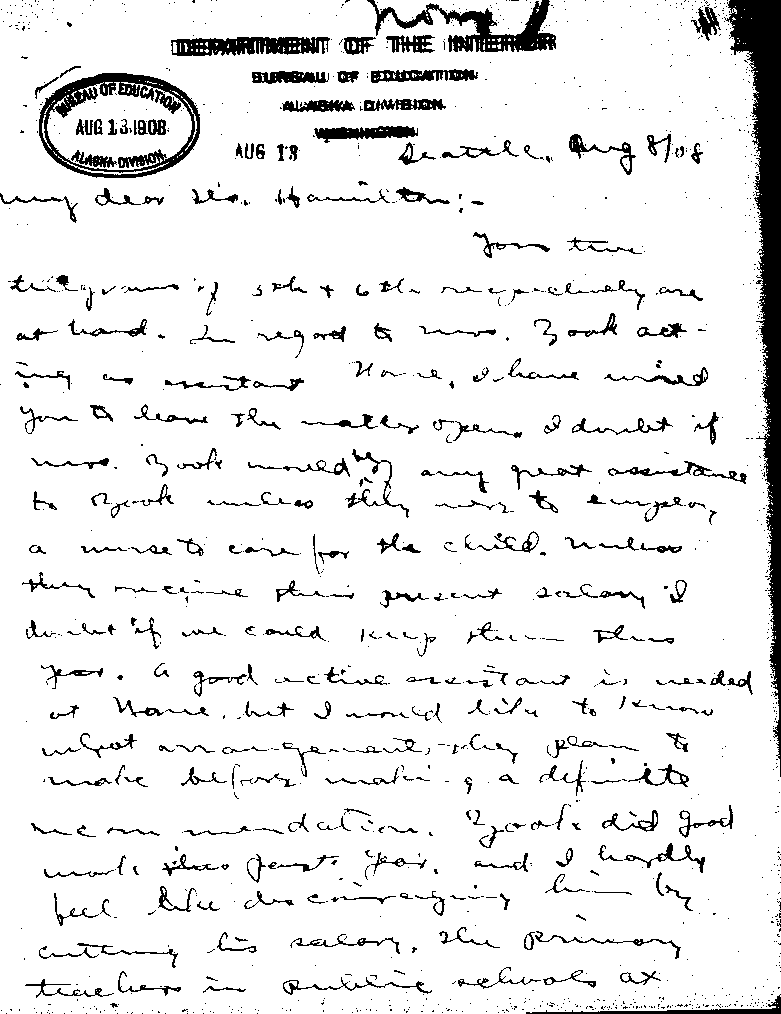 Nome
DEPARTMENT OF THE INTERIOR
BUREAU OF EDUCATION
ALASKA DIVISION
WASHINGTON
BUREAU OF EDUCATION
AUG 13 1908
ALASKA DIVISION
AUG 13
Seattle, Aug 8/08
My dear Mr. Hamilton:-
Your two
telegrams of 5th & 6th respectively are
at hand. In regard to Mrs. Zook act-
ing as assistant Nome, I have wired
you to leave the matter open. I doubt if
Mrs. Zook would be any great assistance
to Zook unless they were to employ
a nurse to care for the child. Unless
they receive their present salary I
doubt if we could keep them this
year. A good active assistant is needed
at Nome, but I would like to know
what arrangements they plan to
make before making a definite
recommendation. Zook did good
work this past year, and I hardly
feel like discouraging him by
cutting his salary. The primary
teachers in public schools at